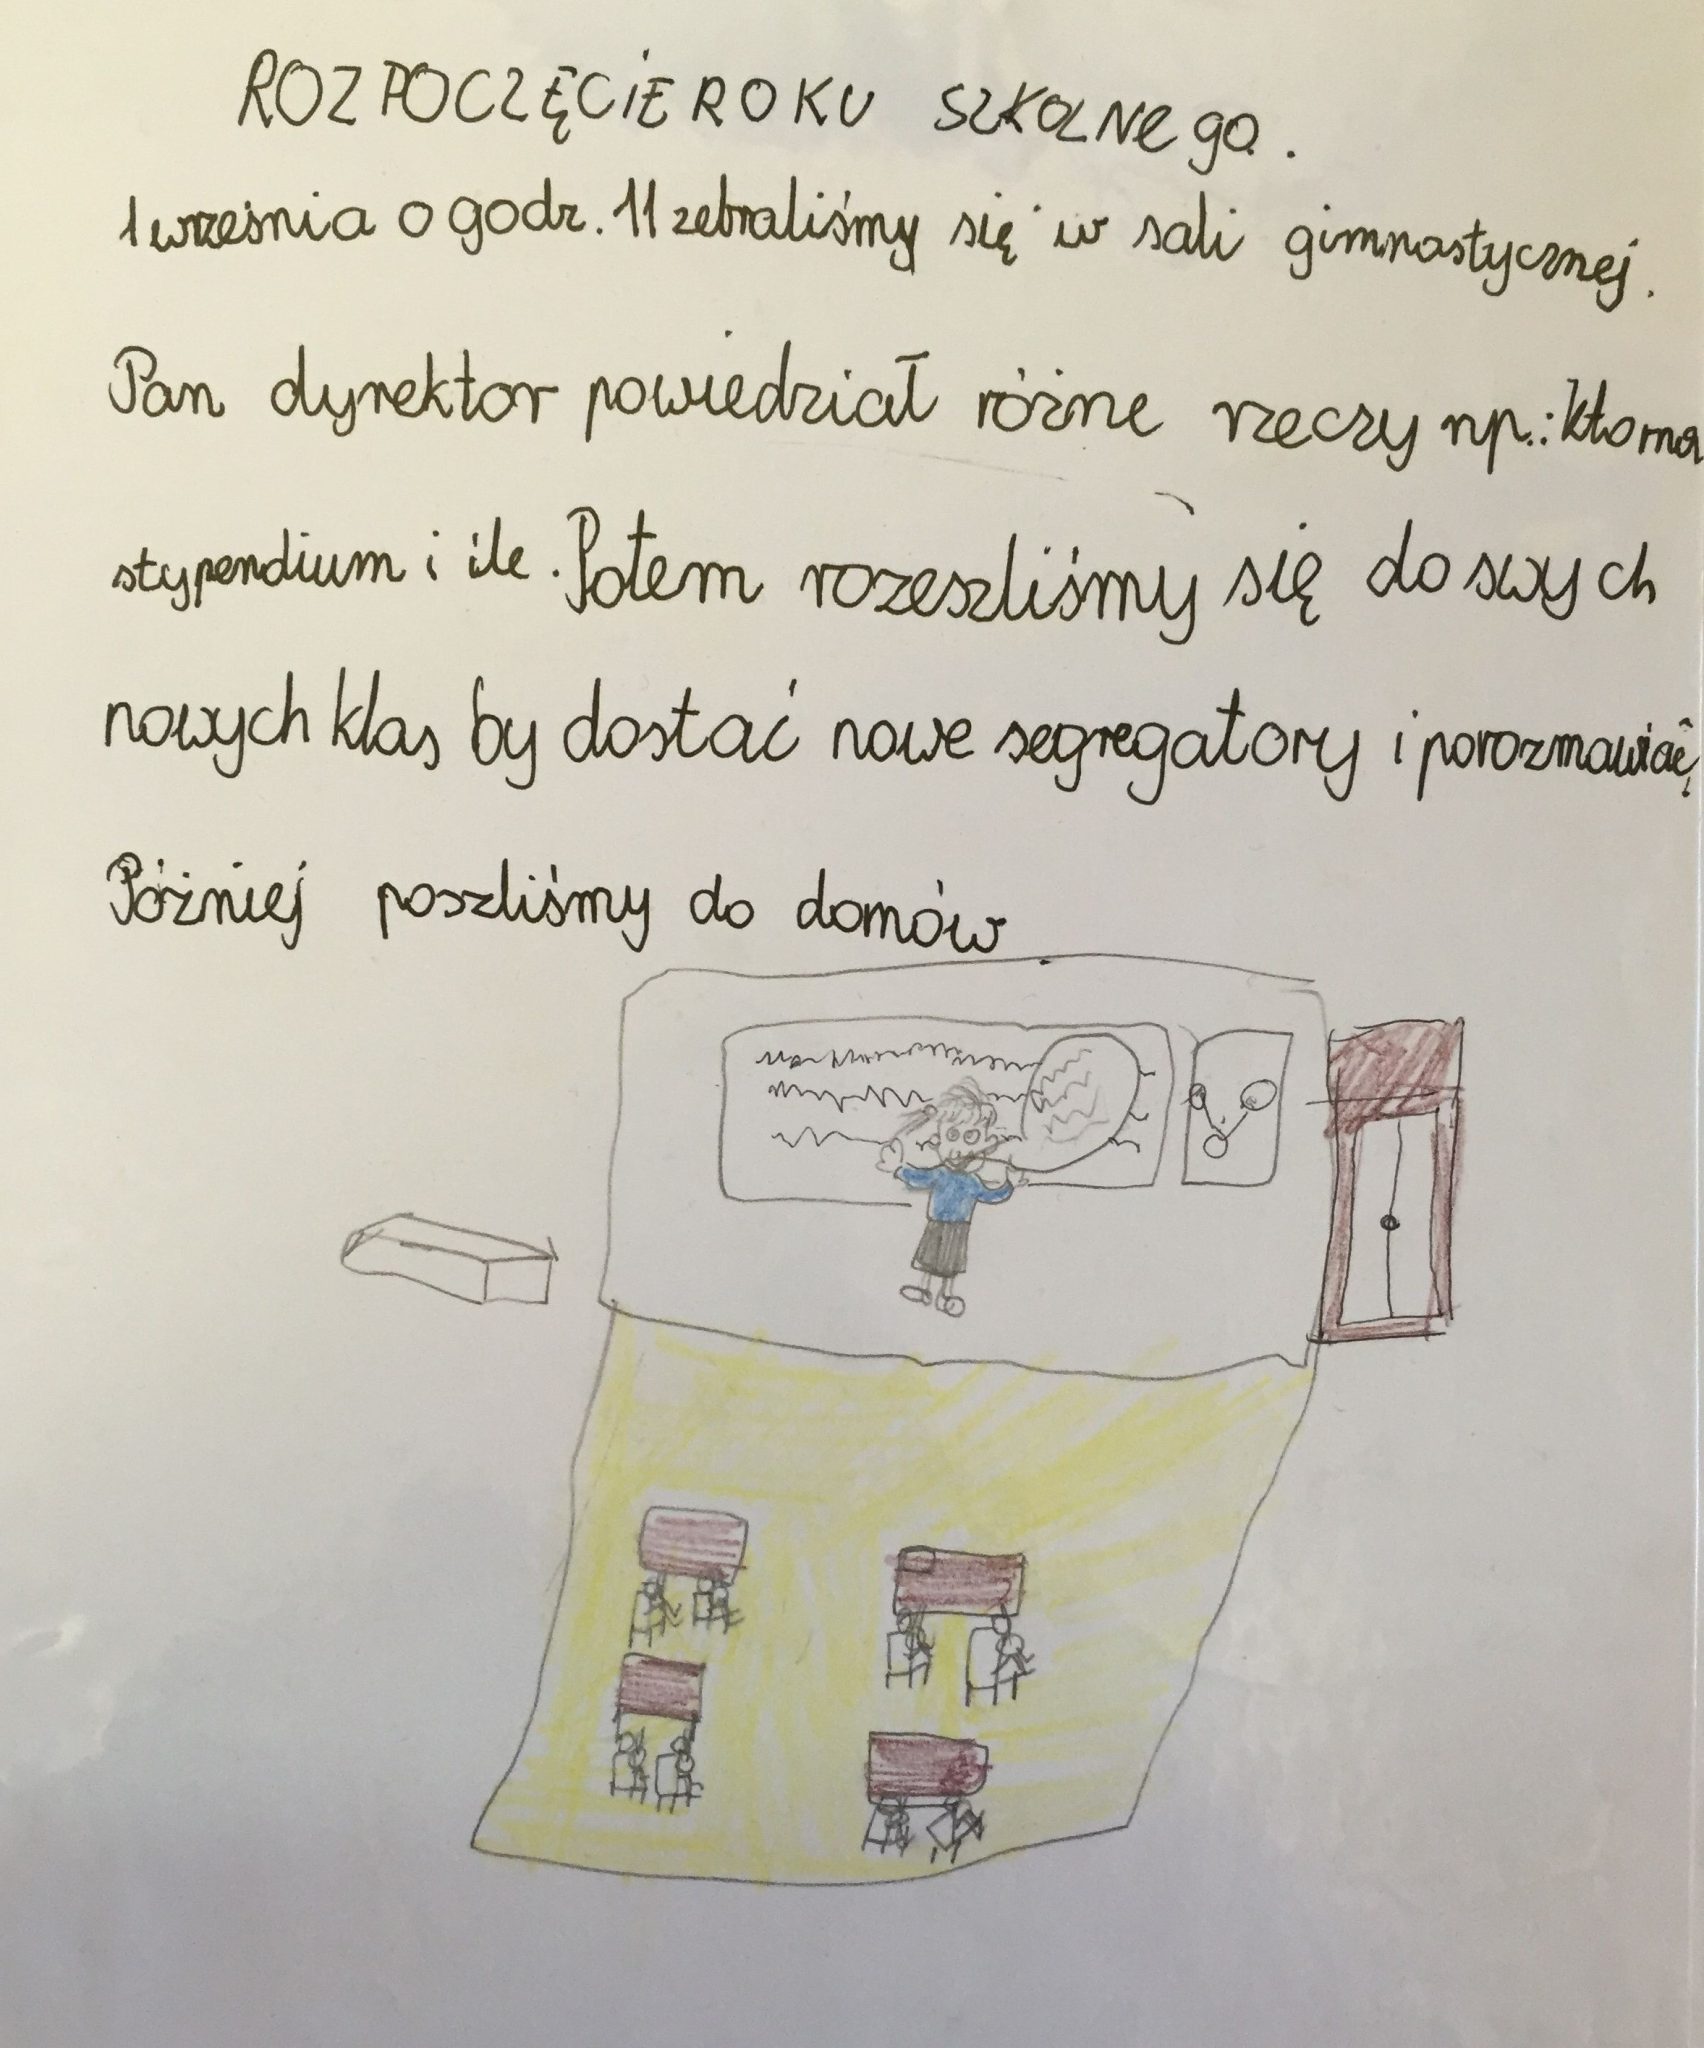 ROZPOCZĘCIE ROKU SZKOLNEgO.
1 września o godz. 11 zebraliśmy się w sali gimnastycznej.
Pan dyrektor powiedział różne rzeczy np.: kto ma
stypendium i ile. Potem rozeszliśmy się do swych
nowych klas by dostać nowe segregatory i porozmawiać.
Później poszliśmy do domów